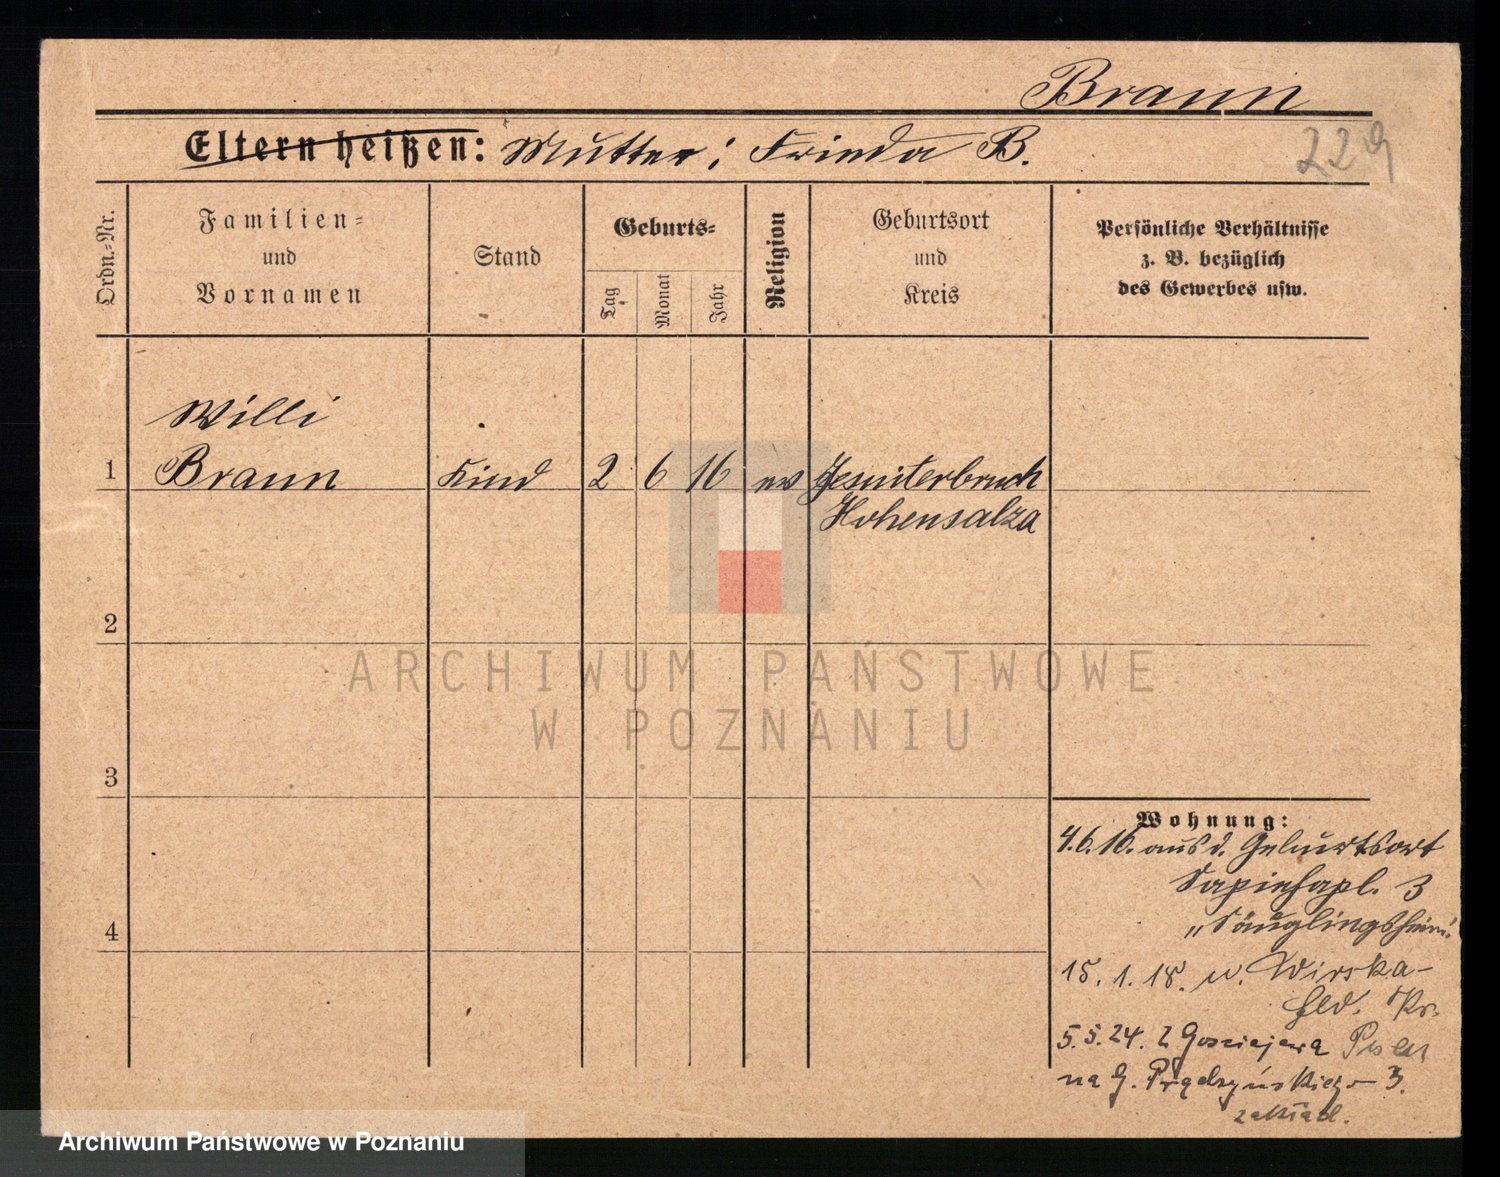 Braun
Eltern heißen: Mutter: Frieda B.
229
Ordn.-Nr.
Familien-
und
Vornamen
Stand
Geburts-
Tag
Monat
Jahr
Religion
Geburtsort
und
Kreis
Persönliche Verhältnisse
z. B. bezüglich
des Gewerbes usw.
Willi
1 Braun Kind 2 6 16 ev Jesuiterbruch
Hohensalza
2
3
4
Wohnung:
4.6.16. aus d. Geburtsort
Sapiehapl. 3
„Säuglingsheim“
15.1.18. n. Wirska-
Kr.
5.5.24. z Gosciejewa
na G. Prądzyńskiego 3.
zakład.
ARCHIWUM PAŃSTWOWE
W POZNANIU
Archiwum Państwowe w Poznaniu